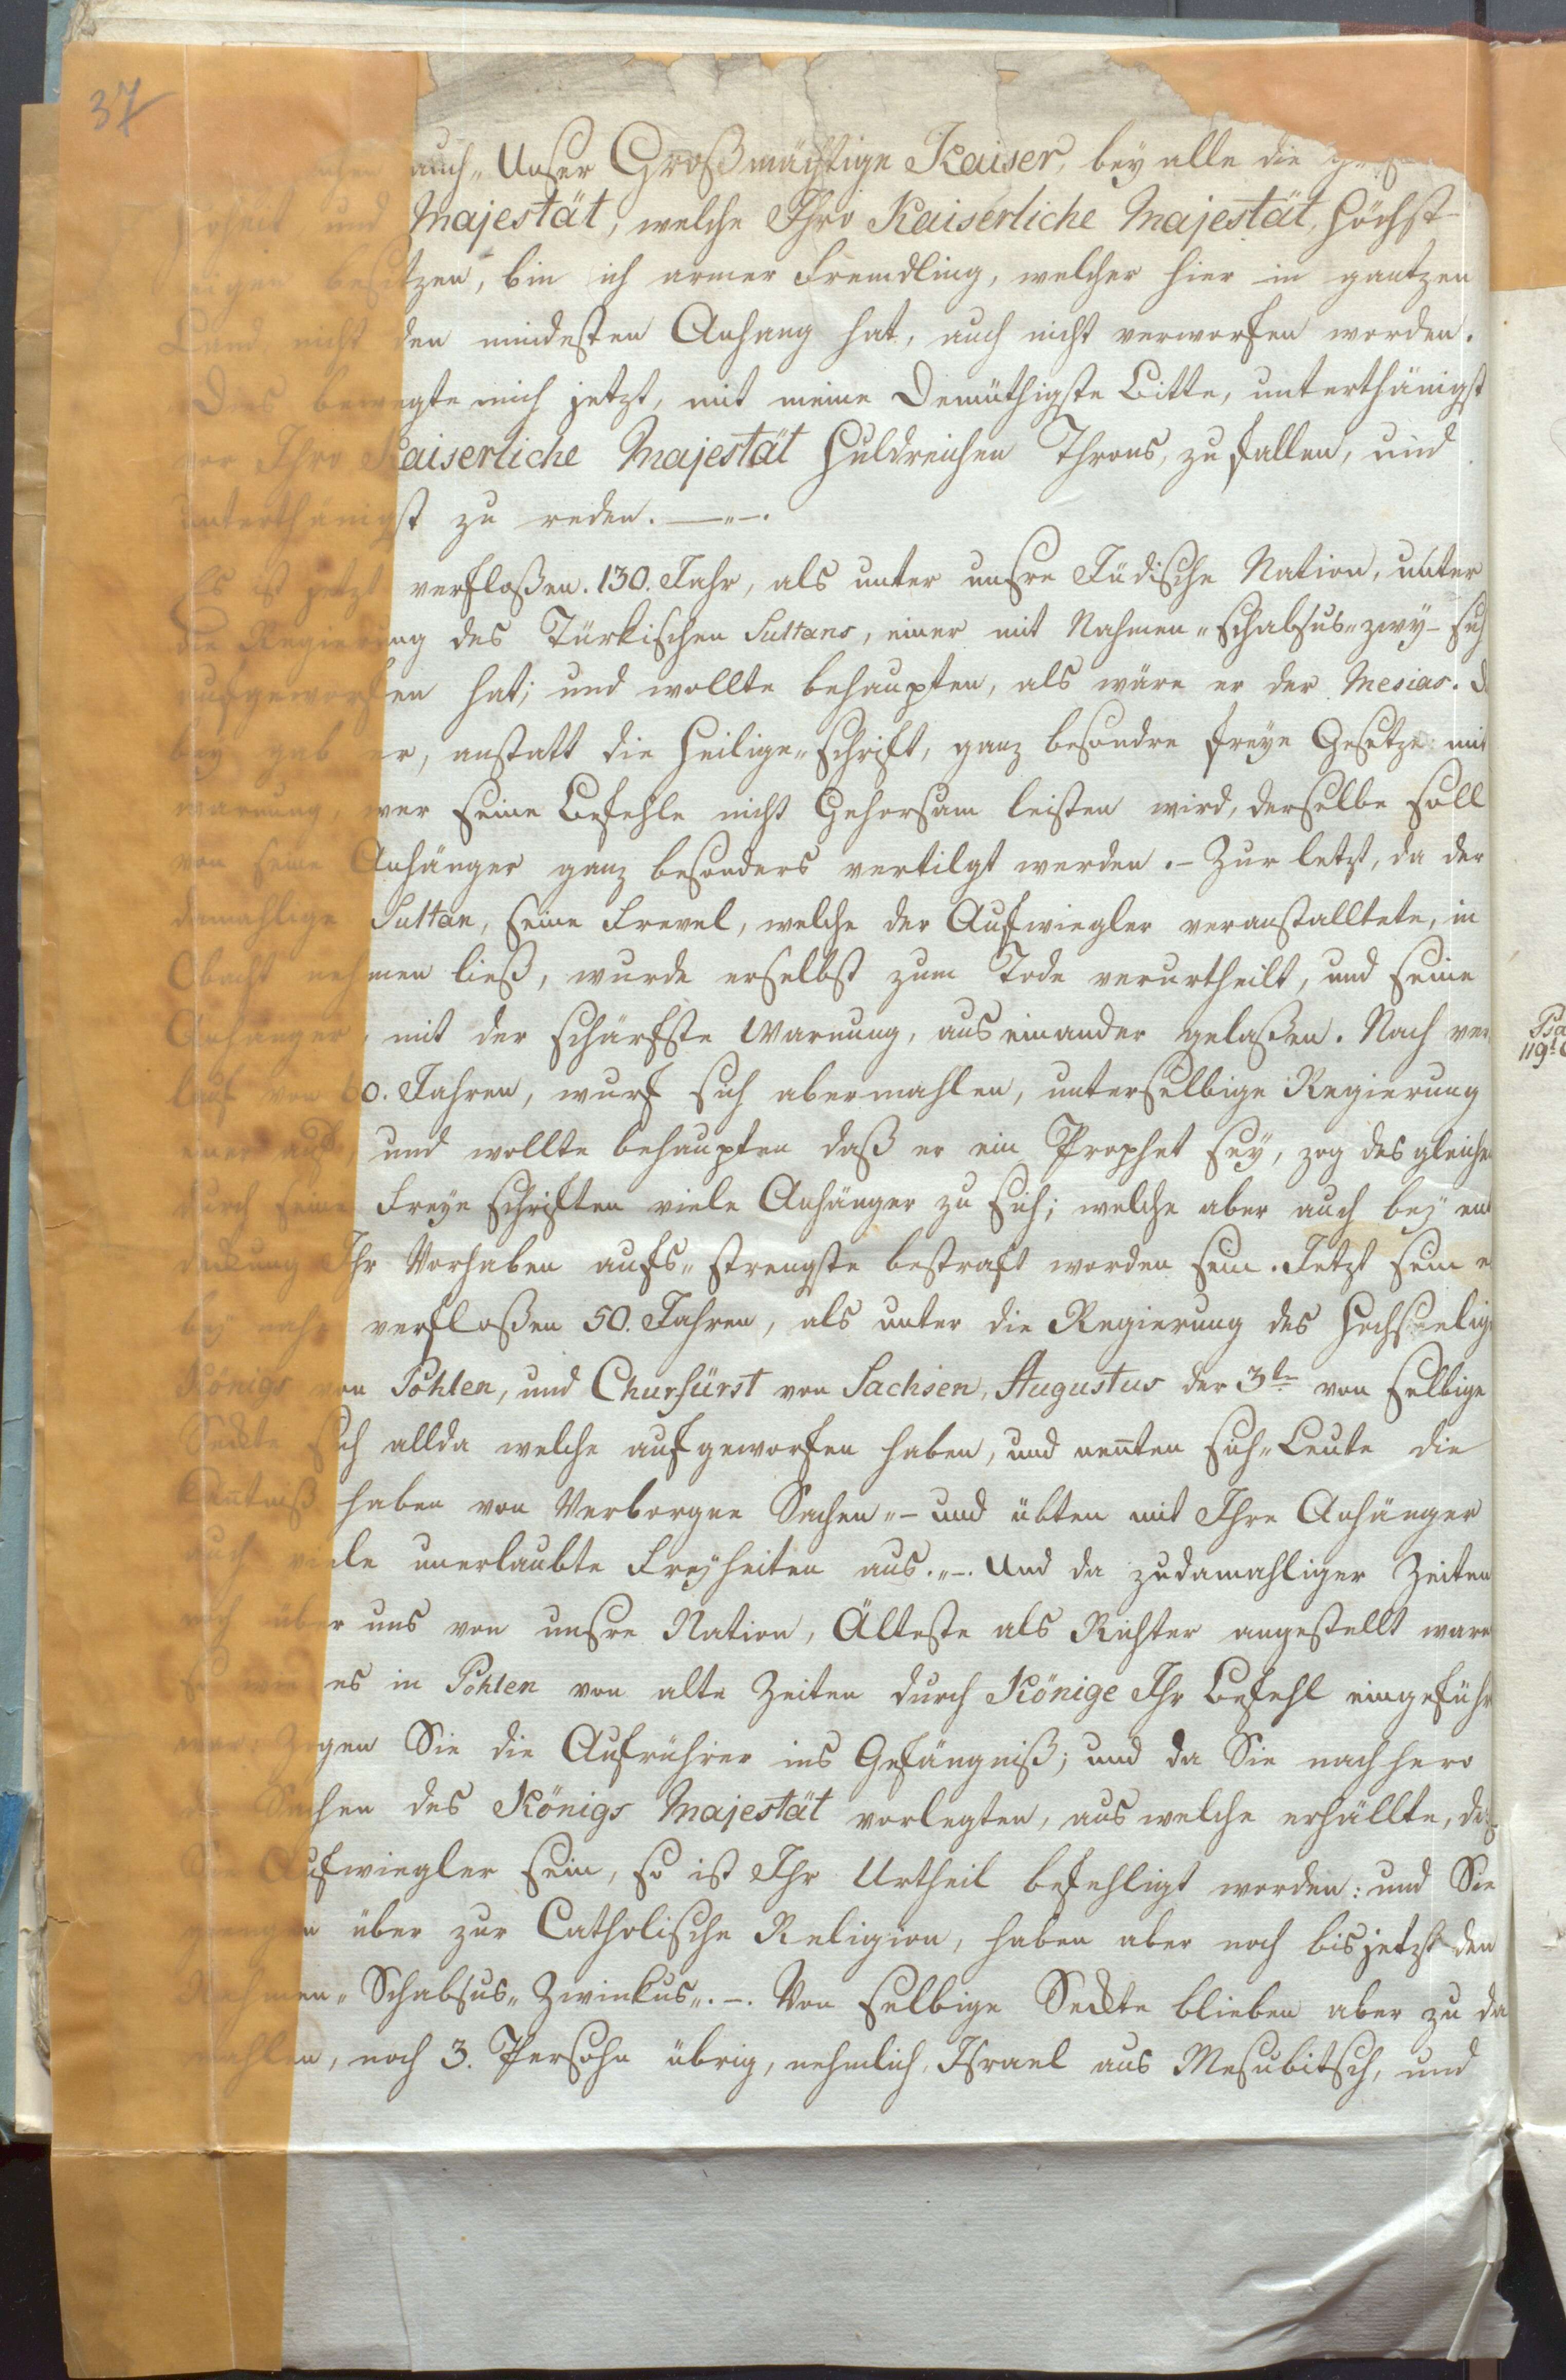 37
auch„ Unser Großmächtige Kaiser, bey alle die
und Majestät, welche Ihro Kaiserliche Majestät, Höchst-
besitzen, bin ich armer Fremdling, welcher hier in gantzen
Land nicht den mindesten Anhang hat, auch nicht verworfen worden.
Dies bewegte mich jetzt, mit meine Demüthigste Bitte, unterthänigst
vor Ihro Kaiserliche Majestät Huldreichen Throns, zu fallen, und
unterthänigst zu reden. —„—.
Es ist jetzt verfloßen. 130. Jahr, als unter unsre Jüdische Nation, unter
die Regierung des Türkischen Sultans, einer mit Nahmen „Schabsus„zwy- sich
aufgeworfen hat; und wollte behaupten, als wäre er der Mesias. Da
bey gab er, anstatt die Heilige„Schrift, ganz besondre freye Gesetze: mit
warnung, wer seine Befehle nicht Gehorsam leisten wird, derselbe soll
von seine Anhänger ganz besonders vertilgt werden. - Zur letzt, da der
damahlige Sultan, seine Frevel, welche der Aufwiegler veranstalltete, in
Obacht nehmen ließ, wurde erselbst zum Tode verurtheilt, und seine
Anhänger, mit der schärfste Warnung, aus einander gelaßen. Nach ver
lauf von 60. Jahren, wurf sich abermahlen, unterselbige Regierung
einer auf, und wollte behaupten daß er ein Prophet sey, zog des gleichen
durch seine Freye Schriften viele Anhänger zu sich; welche aber auch bey ent
deckung Ihr Vorhaben aufs„strengste bestraft worden sein. Jetzt sein es
bey nahe verfloßen 50. Jahren, als unter die Regierung des Hochseelige
Königs von Pohlen, und Churfürst von Sachsen, Augustus der 3te von selbige
Seckte sich allda welche aufgeworfen haben, und nenten sich„Leute die
Kentniß haben von Verborgne Sachen„- und übten mit Ihre Anhänger
auch viele unerlaubte Freyheiten aus.„-. Und da zudamahliger Zeiten
noch über uns von unsre Nation, Älteste als Richter angestellt waren
so wie es in Pohlen von alte Zeiten durch Könige Ihr Befehl eingeführ
war: Zogen Sie die Aufrührer ins Gefängniß; und da Sie nachhero
die Sachen des Königs Majestät vorlegten, aus welche erhällte, daß
Sie Aufwiegler sein, so ist Ihr Urtheil befehligt worden: und Sie
giengen über zur Catholische Religion, haben aber noch bisjetzt den
Nahmen„ Schabsus„ Zwinkus„.-. Von selbige Seckte blieben aber zu da
mahlen, noch 3. Persohn übrig, nehmlich, Israel aus Mesubitsch, und